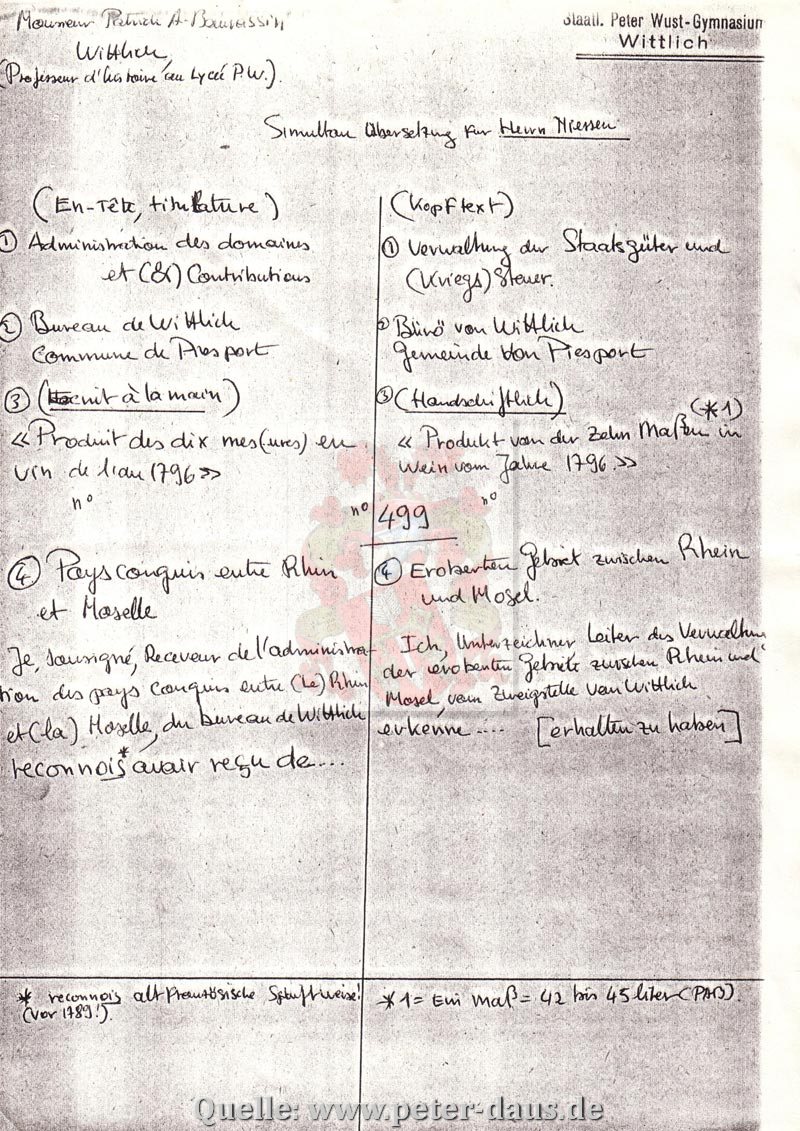 Monsieur Patrick A.
Wittlich
(Professeur d'histoire au Lycée P.W.).
Staatl. Peter Wust-Gymnasium
Wittlich
Simultan Übersetzung für Herrn Niessen
(En-Tête, titulature)
① Administration des domaines
et (&) Contributions
② Bureau de Wittlich
Commune de Piesport
③ (écrit à la main)
« Produit des dix mes(ures) en
vin de l'an 1796 »
n°
④ Pays conquis entre Rhin
et Moselle
Je, sousigné, Receveur de l'administra-
tion des pays conquis entre (le) Rhin
et (la) Moselle, du bureau de Wittlich
reconnois* avoir reçu de...
(Kopftext)
① Verwaltung der Staatsgüter und
(Kriegs) Steuer.
② Büro von Wittlich
Gemeinde von Piesport
③ (Handschriftlich)
(*1)
« Produkt von der Zehn Maßen in
Wein vom Jahre 1796. »
n° 499 n°
④ Eroberten Gebiet zwischen Rhein
und Mosel.
Ich, Unterzeichner Leiter des Verwaltung
der eroberten Gebiete zwischen Rhein und
Mosel, vom Zweigstelle van Wittlich
erkenne.... [erhalten zu haben]
* reconnois altfranzösische Schreibweise!
(vor 1789!).
*1 = Ein Maß = 42 bis 45 liter (PAB).
Quelle: www.peter-daus.de